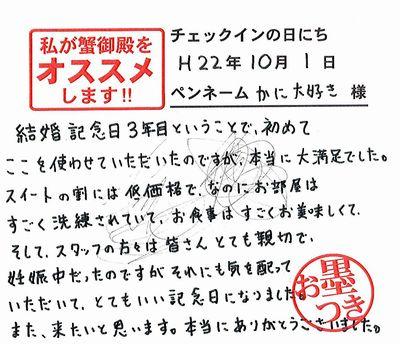 私が蟹御殿を
オススメ
します!!
チェックインの日にち
H22年10月1日
ペンネーム かに大好き 様
結婚記念日3年目ということで、初めて
ここを使わせていただいたのですが、本当に大満足でした。
スイートの割には低価格で、なのにお部屋は
すごく洗練されていて、お食事はすごくお美味しくて、
そして、スタッフの方々は皆さんとても親切で、
妊娠中だったのですがそれにも気を配って
いただいて、とてもいい記念日になりました。
また、来たいと思います。本当にありがとうございました。
お墨つき